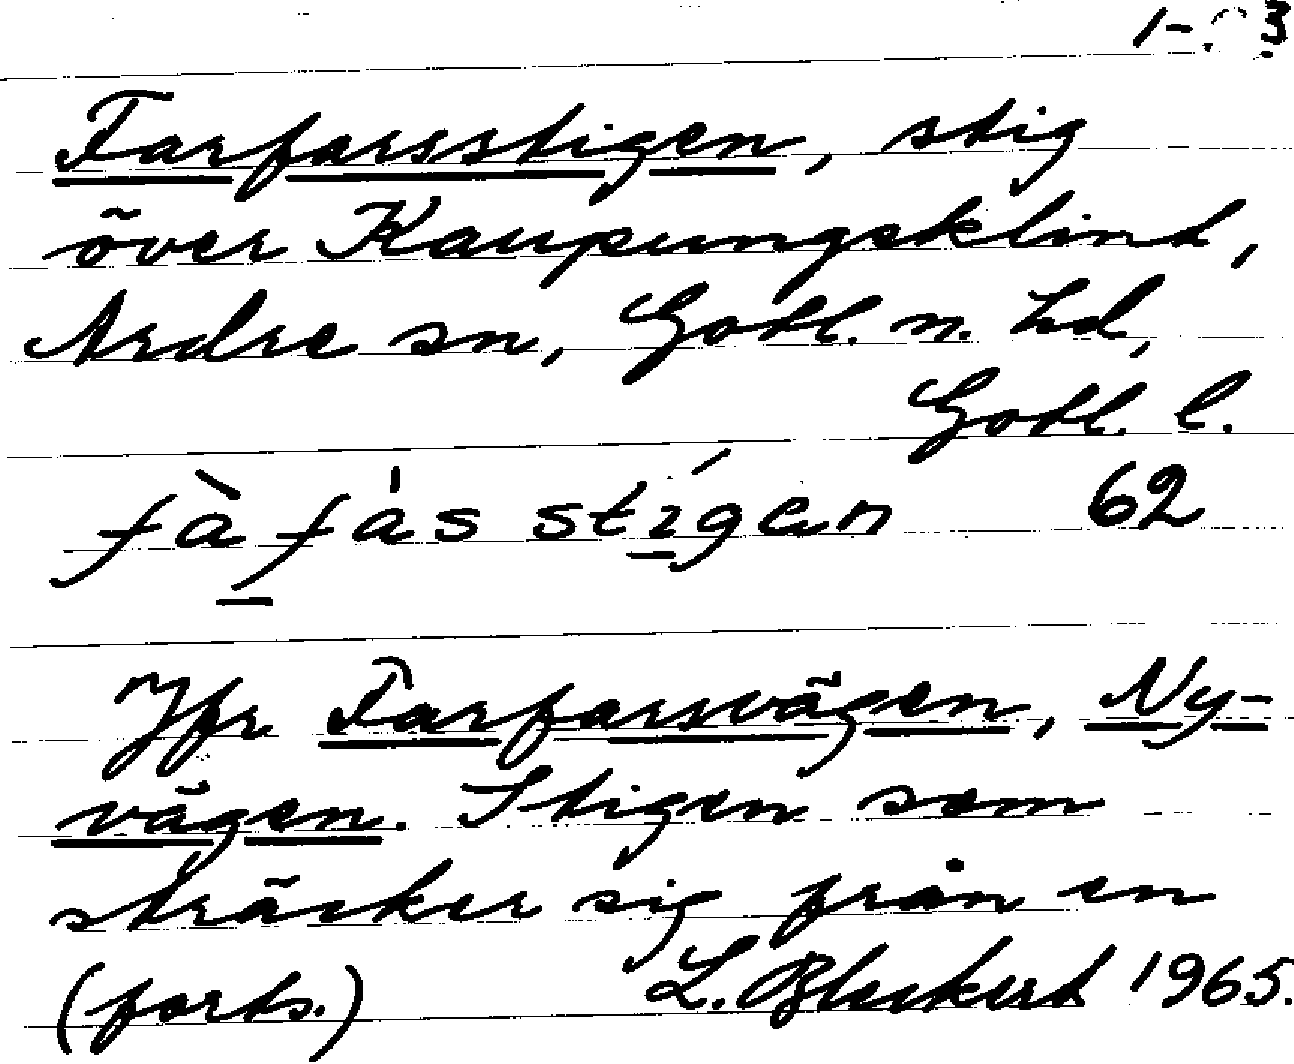 Farfarsstigen, stig
över Kaupungsklint,
Ardre sn, Gotl. n. hd,
Gotl. l.
fàfás stígen 62
Jfr Farfarsvägen, Ny-
vägen. Stigen som
sträcker sig från en
(forts.) L. Bleckert 1965.